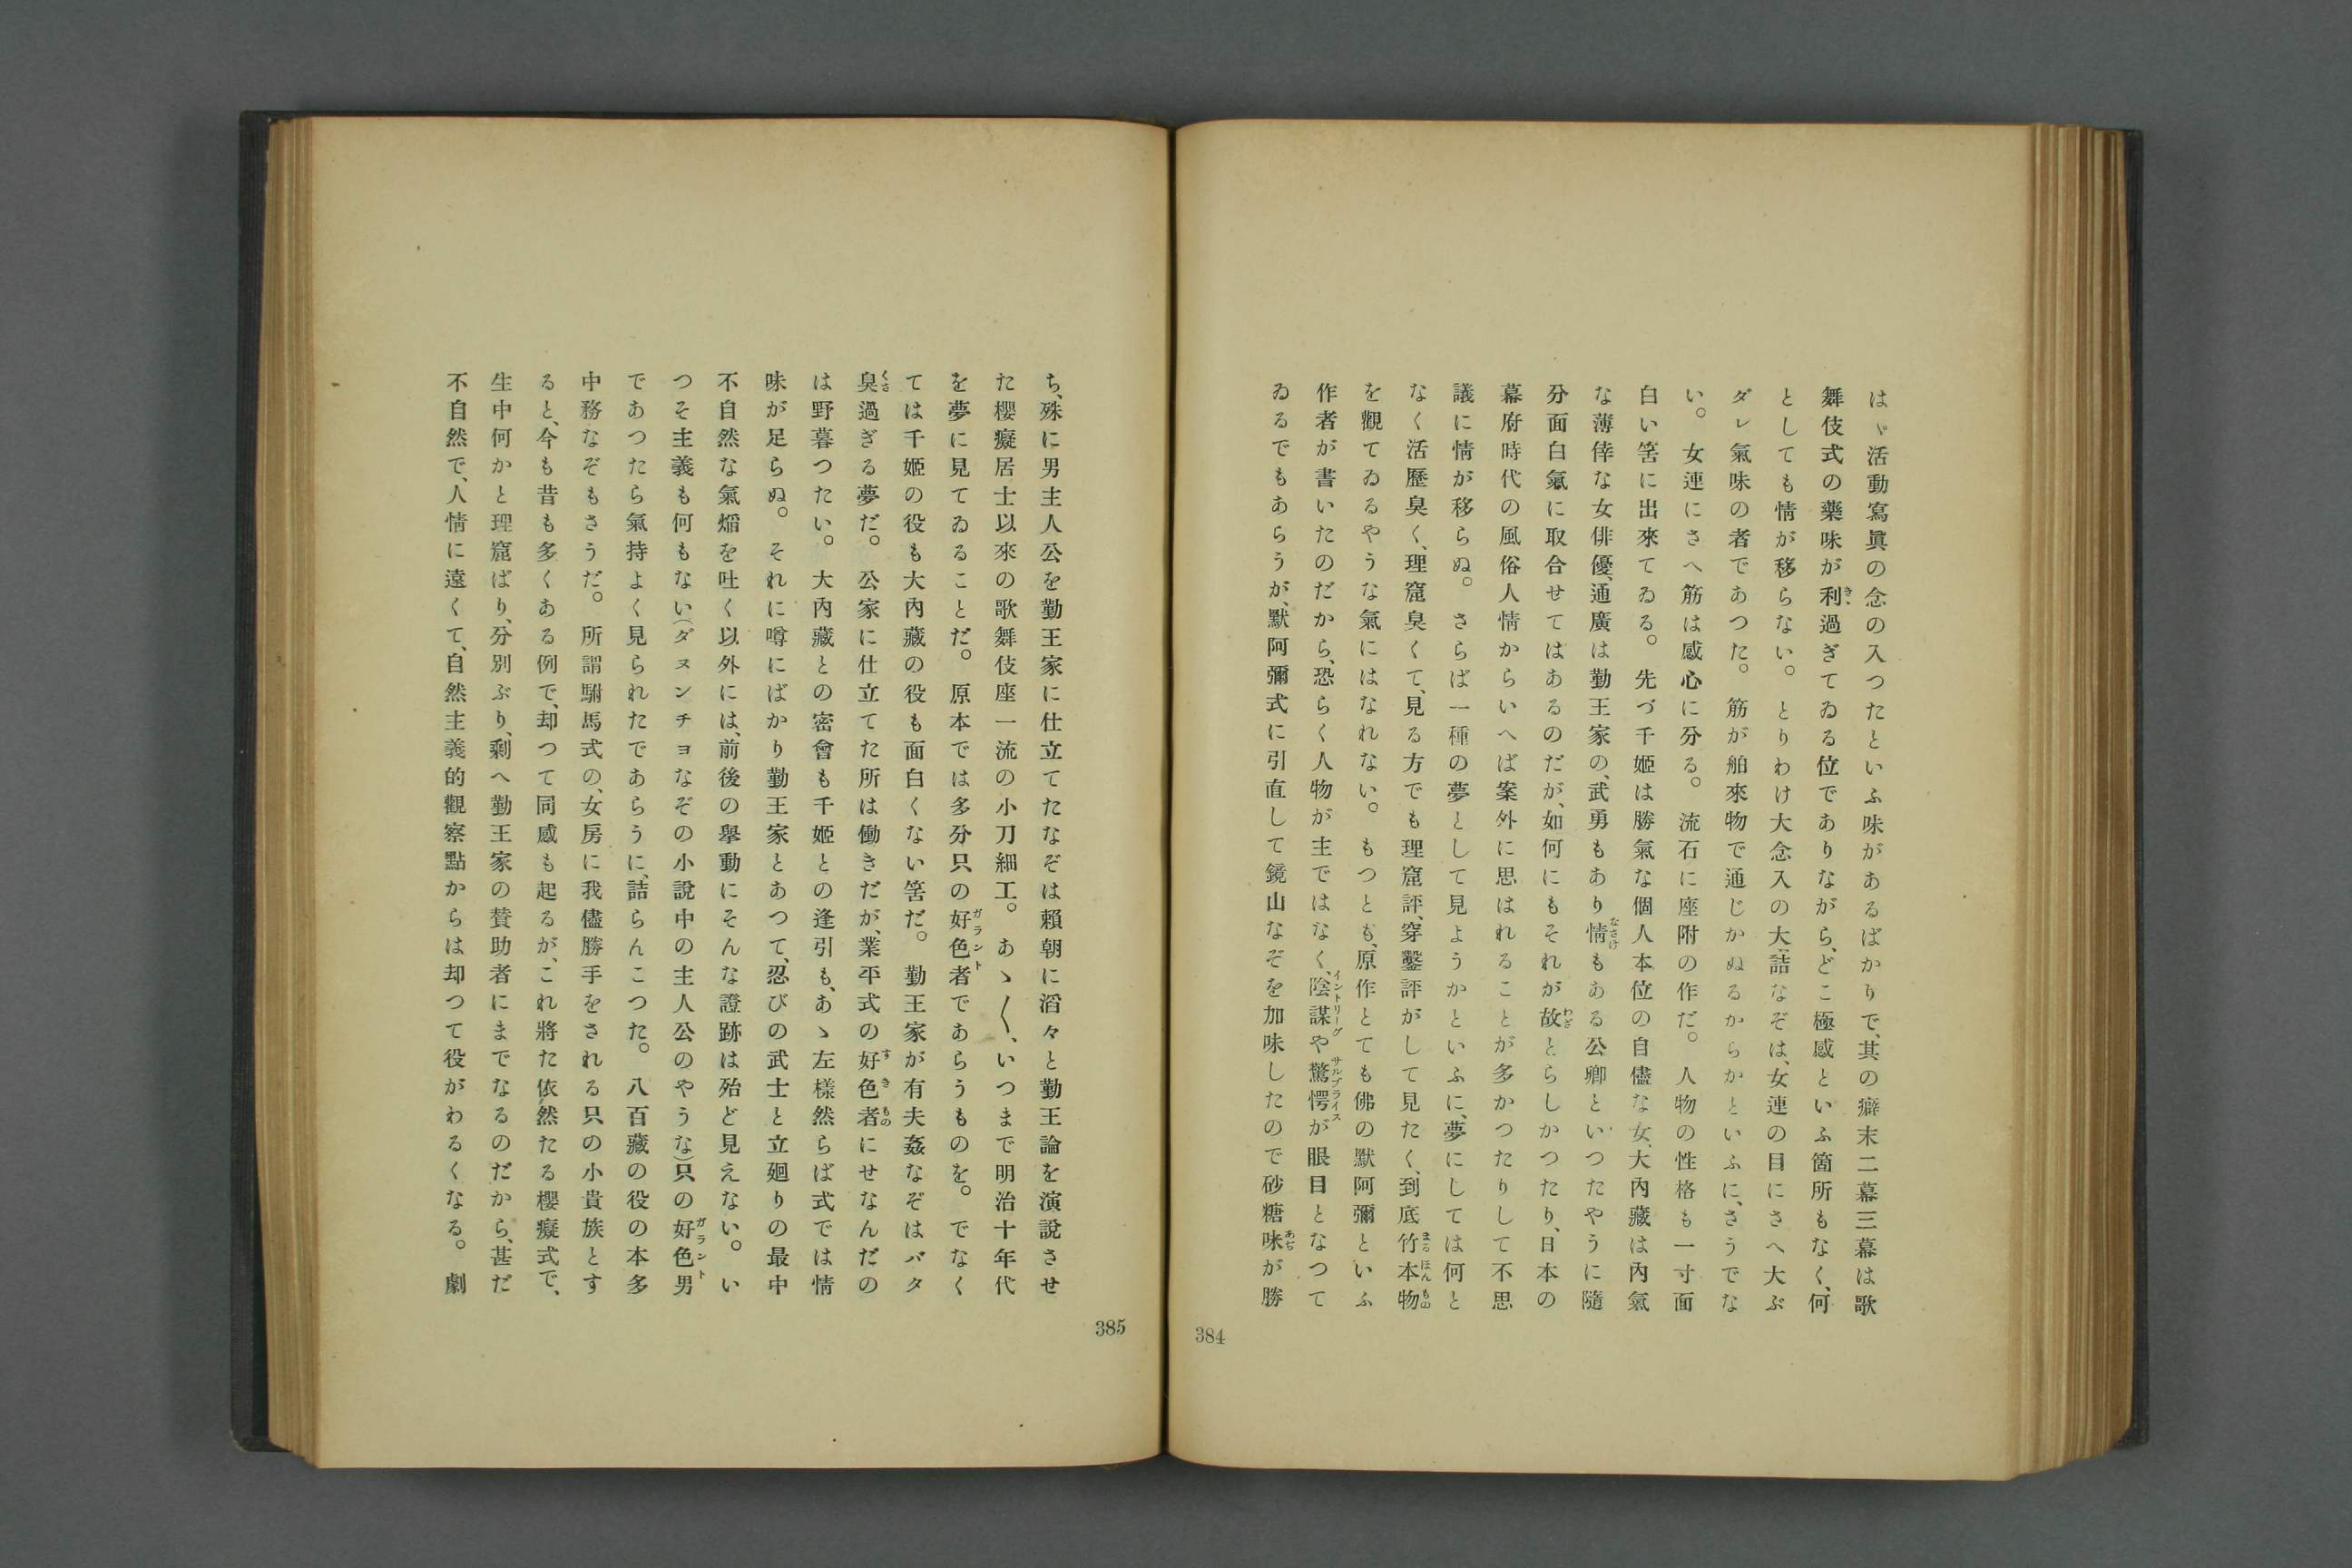 はゞ活動寫眞の念の入つたといふ味があるばかりで、其の癖末二幕三幕は歌
舞伎式の藥味が利過ぎてゐる位でありながら、どこ極感といふ箇所もなく、何
としても情が移らない。とりわけ大念入の大詰なぞは、女連の目にさへ大ぶ
ダレ氣味の者であつた。筋が舶來物で通じかぬるからかといふに、さうでな
い。女連にさへ筋は感心に分る。流石に座附の作だ。人物の性格も一寸面
白い筈に出來てゐる。先づ千姬は勝氣な個人本位の自儘な女、大內藏は內氣
な薄倖な女俳優、通廣は勤王家の、武勇もあり情もある公卿といつたやうに隨
分面白氣に取合せてはあるのだが、如何にもそれが故とらしかつたり、日本の
幕府時代の風俗人情からいへば案外に思はれることが多かつたりして不思
議に情が移らぬ。さらば一種の夢として見ようかといふに、夢にしては何と
なく活歷臭く、理窟臭くて、見る方でも理窟評、穿鑿評がして見たく、到底竹本物
を觀てゐるやうな氣にはなれない。もつとも、原作とても佛の默阿彌といふ
作者が書いたのだから、恐らく人物が主ではなく、陰謀や驚愕が眼目となつて
ゐるでもあらうが、默阿彌式に引直して鏡山なぞを加味したので砂糖味が勝
384
ち、殊に男主人公を勤王家に仕立てたなぞは賴朝に滔々と勤王論を演說させ
た櫻癡居士以來の歌舞伎座一流の小刀細工。あゝ〱、いつまで明治十年代
を夢に見てゐることだ。原本では多分只の好色者であらうものを。でなく
ては千姬の役も大內藏の役も面白くない筈だ。勤王家が有夫姦なぞはバタ
臭過ぎる夢だ。公家に仕立てた所は働きだが、業平式の好色者にせなんだの
は野暮つたい。大內藏との密會も千姬との逢引も、あゝ左樣然らば式では情
味が足らぬ。それに噂にばかり勤王家とあつて、忍びの武士と立廻りの最中
不自然な氣焔を吐く以外には、前後の擧動にそんな證跡は殆ど見えない。い
つそ主義も何もない(ダヌンチヨなぞの小說中の主人公のやうな)只の好色男
であつたら氣持よく見られたであらうに、詰らんこつた。八百藏の役の本多
中務なぞもさうだ。所謂駙馬式の、女房に我儘勝手をされる只の小貴族とす
ると、今も昔も多くある例で、却つて同感も起るが、これ將た依然たる櫻癡式で、
生中何かと理窟ばり、分別ぶり、剩へ勤王家の贊助者にまでなるのだから、甚だ
不自然で、人情に遠くて、自然主義的觀察點からは却つて役がわるくなる。劇
385